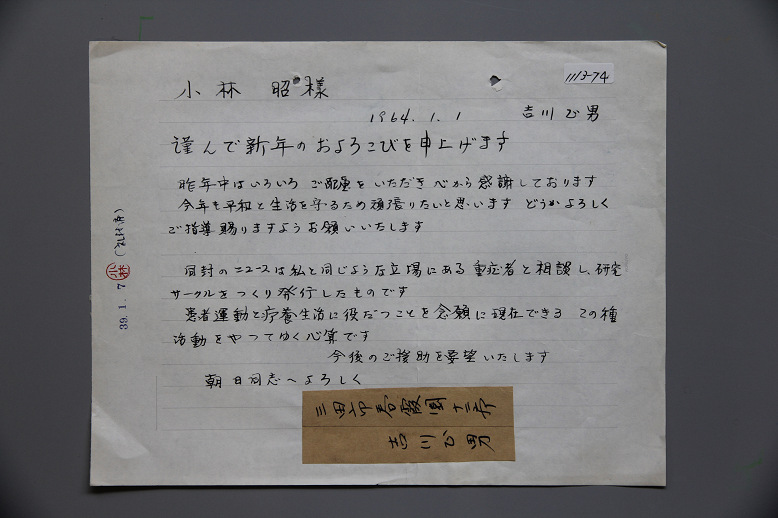 1113-74
小林 昭様
1964.1.1 吉川正男
謹んで新年のおよろこびを申上げます
昨年中はいろいろご配慮をいただき心から感謝しております
今年も平和と生活を守るため頑張りたいと思います どうかよろしく
ご指導賜りますようお願いいたします
同封のニュースは私と同じような立場にある重症者と相談し、研究
サークルをつくり発行したものです
患者運動と療養生活に役だつことを念願に現在できる この種
活動をやってゆく心算です
今後のご援助を要望いたします
朝日同志へよろしく
三田市春霞園
吉川正男
39.1.7 小林